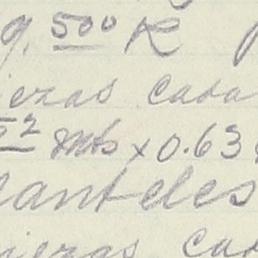 9. 500 K
ezas cada
52 Mts x 0.63
lanteles
iezas cad